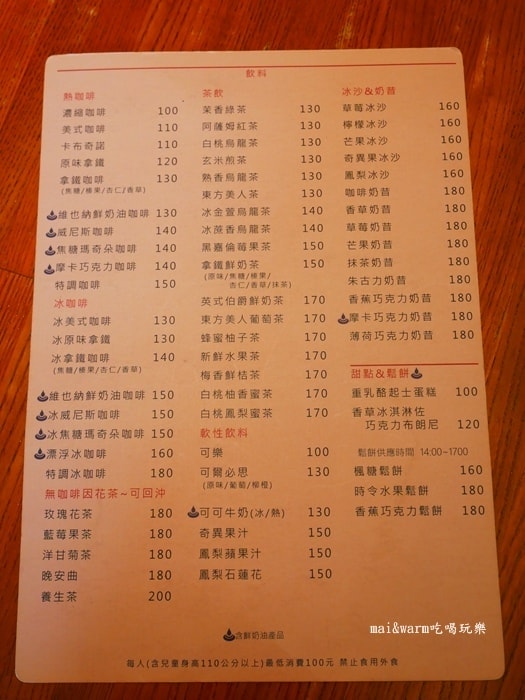 飲料
熱咖啡
濃縮咖啡 100
美式咖啡 110
卡布奇諾 110
原味拿鐵 120
拿鐵咖啡 130
(焦糖/榛果/杏仁/香草)
維也納鮮奶油咖啡 130
威尼斯咖啡 140
焦糖瑪奇朵咖啡 140
摩卡巧克力咖啡 140
特調咖啡 150
冰咖啡
冰美式咖啡 130
冰原味拿鐵 130
冰拿鐵咖啡 140
(焦糖/榛果/杏仁/香草)
維也納鮮奶油咖啡 150
冰威尼斯咖啡 150
冰焦糖瑪奇朵咖啡 150
漂浮冰咖啡 160
特調冰咖啡 180
無咖啡因花茶~可回沖
玫瑰花茶 180
藍莓果茶 180
洋甘菊茶 180
晚安曲 180
養生茶 200
茶飲
茉香綠茶 130
阿薩姆紅茶 130
白桃烏龍茶 130
玄米煎茶 130
熟香烏龍茶 130
東方美人茶 130
冰金萱烏龍茶 140
冰蔗香烏龍茶 140
黑嘉倫莓果茶 150
拿鐵鮮奶茶 150
(原味/焦糖/榛果/
杏仁/香草/抹茶)
英式伯爵鮮奶茶 170
東方美人葡萄茶 170
蜂蜜柚子茶 170
新鮮水果茶 170
梅香鮮桔茶 170
白桃柚香蜜茶 170
白桃鳳梨蜜茶 170
軟性飲料
可樂 100
可爾必思 130
(原味/葡萄/柳橙)
可可牛奶(冰/熱) 130
奇異果汁 150
鳳梨蘋果汁 150
鳳梨石蓮花 150
冰沙&奶昔
草莓冰沙 160
檸檬冰沙 160
芒果冰沙 160
奇異果冰沙 160
鳳梨冰沙 160
咖啡奶昔 180
香草奶昔 180
草莓奶昔 180
芒果奶昔 180
抹茶奶昔 180
朱古力奶昔 180
香蕉巧克力奶昔 180
摩卡巧克力奶昔 180
薄荷巧克力奶昔 180
甜點&鬆餅
重乳酪起士蛋糕 100
香草冰淇淋佐
巧克力布朗尼 120
鬆餅供應時間 14:00~1700
楓糖鬆餅 160
時令水果鬆餅 180
香蕉巧克力鬆餅 180
含鮮奶油產品
每人(含兒童身高110公分以上)最低消費100元 禁止食用外食
mai&warm吃喝玩樂